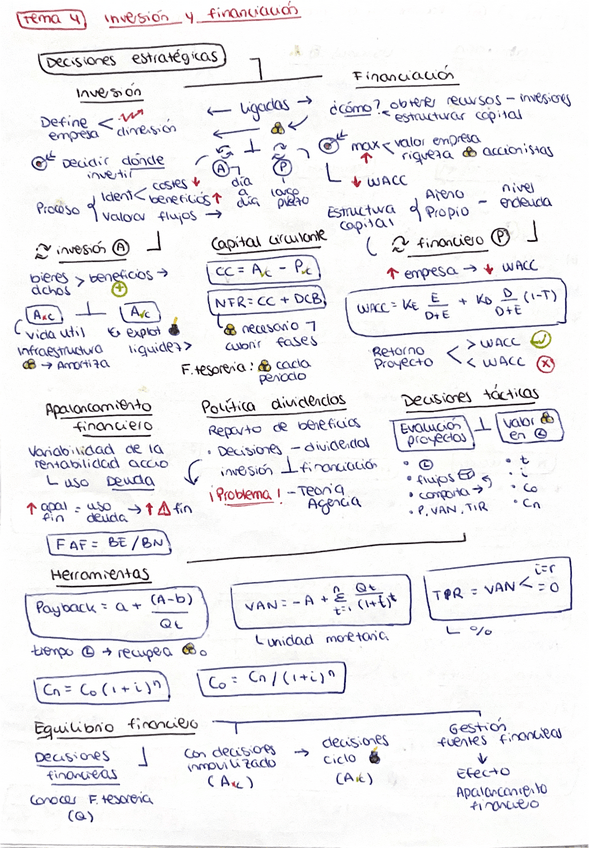 Tema 4 Inversión y financiación
Decisiones estratégicas
Inversión
Define empresa < dimensión
Decidir dónde invertir
Proceso { Ident < costes ↓ beneficios ↑
Valorar flujos →
← Ligadas →
←
A P
día a día
largo plazo
Financiación
¿cómo? < obtener recursos - inversiones
estructurar capital
max < valor empresa
↑ riqueza accionistas
↓ WACC
Estructura capital { Ajeno Propio - nivel endeuda
inversión A
bienes dchos > beneficios →
+
Anc Ac
vida útil
explot
infraestructura
liquidez>
→ Amortiza
Capital circulante
CC = Ac - Pc
NFR = CC + DCB
necesario
cubrir fases
F. tesorería: cada periodo
financiero P
↑ empresa → ↓ WACC
WACC = KE E/D+E + KD D/D+E (1-T)
Retorno Proyecto < > WACC
< WACC
Apalancamiento financiero
Variabilidad de la
rentabilidad accio
└ uso Deuda
↑ apal fin = uso deuda → ↑ fin
FAF = BE/BN
Política dividendos
Reparto de beneficios
· Decisiones - dividendos
inversión ⊥ financiación
¡Problema! - Teoría Agencia
Decisiones tácticas
Evaluación proyectos ⊥ valor en
• flujos
• comporta →
• P, VAN, TIR
• t
• i
• Co
• Cn
Herramientas
Payback = a + (A-b)/Qt
tiempo → recupera o
VAN = -A + Σ n t=1 Qt/(1+i)t
└ unidad monetaria
TIR = VAN < i=r = 0
└ %
Cn = Co (1+i)n
Co = Cn / (1+i)n
Equilibrio financiero
Decisiones financieras
conocer F. tesorería
(Q)
Con decisiones inmovilizado
(Anc)
→ decisiones ciclo
(Ac)
Gestión fuentes financieras
↓
Efecto
Apalancamiento financiero